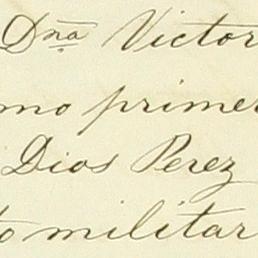 Dña Victor
mo primer
Dios Perez
to militar